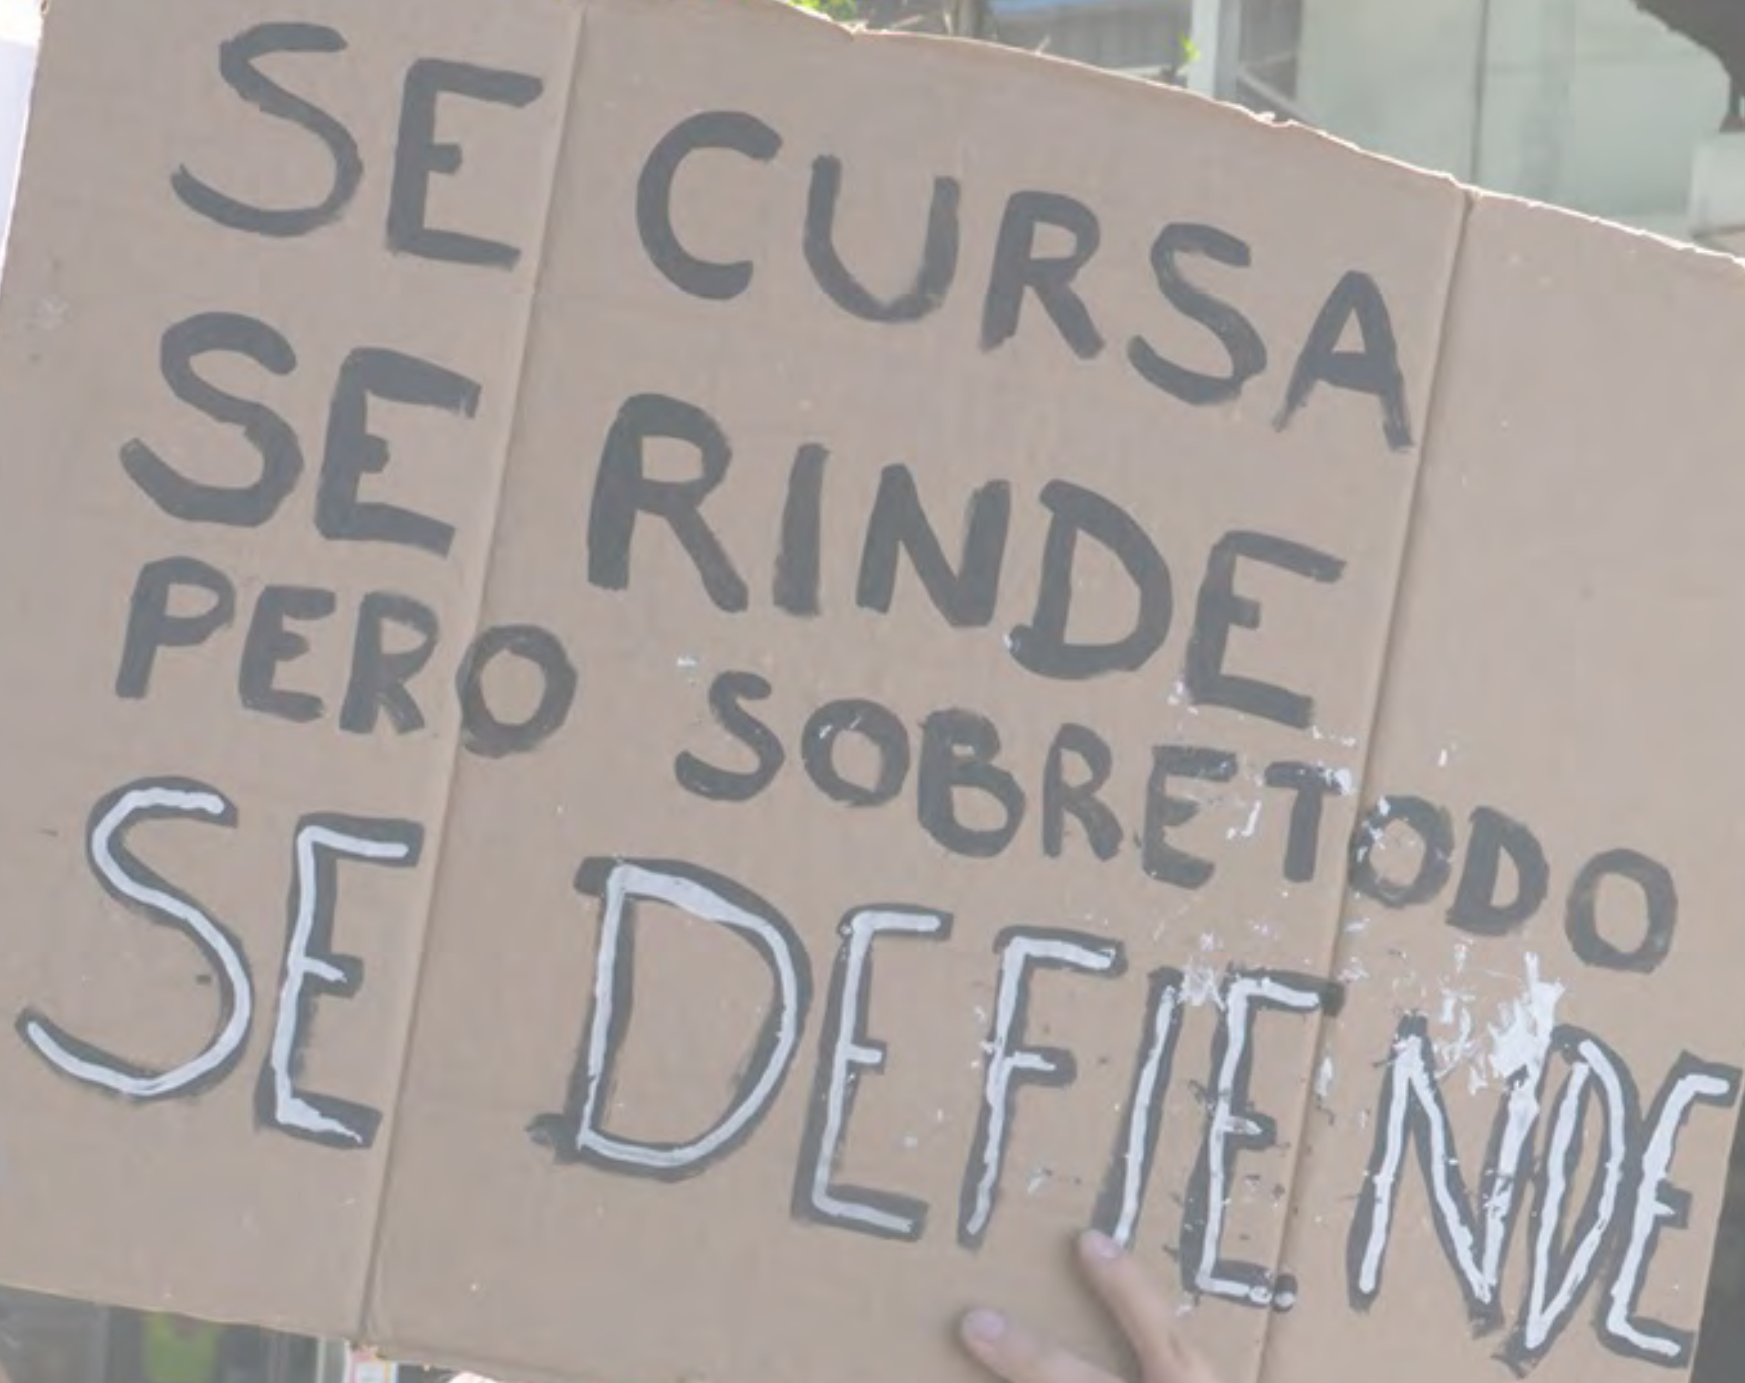 SE CURSA
SE RINDE
PERO SOBRETODO
SE DEFIENDE